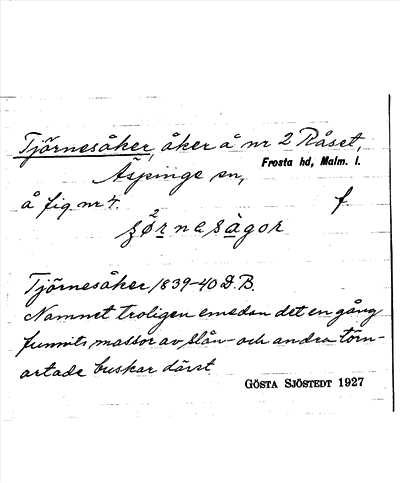 Tjörnesåker, åker å nr 2 Råset,
Frosta hd, Malm. l.
Äspinge sn,
å fig nr 4. f.
Tjörnesåker 1839-40 D.B.
Namnet troligen emedan det en gång
funnits massor av slån- och andra törn-
artade buskar därst.
GÖSTA SJÖSTEDT 1927